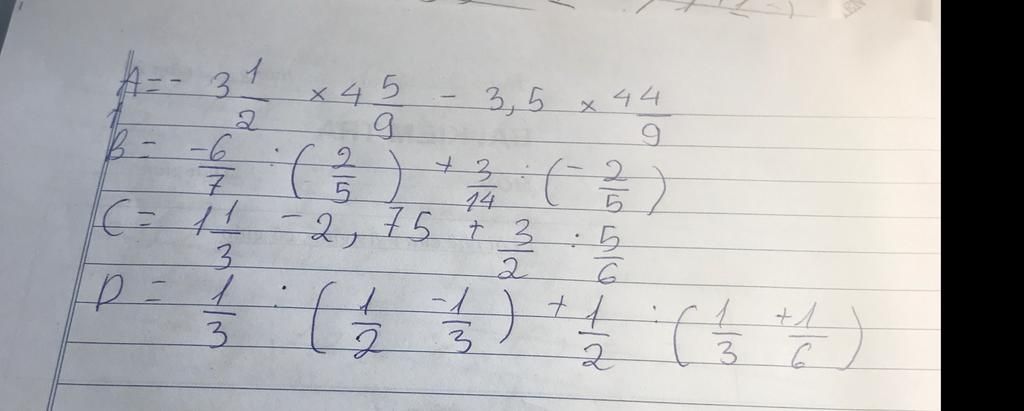 A = - 3 1/2 × 4 5/9 - 3,5 × 4 4/9
B = -6/7 : (2/5) + 3/14 : (- 2/5)
C = 1 1/3 - 2,75 + 3/2 : 5/6
D = 1/3 : (1/2 - 1/3) + 1/2 : (1/3 + 1/6)